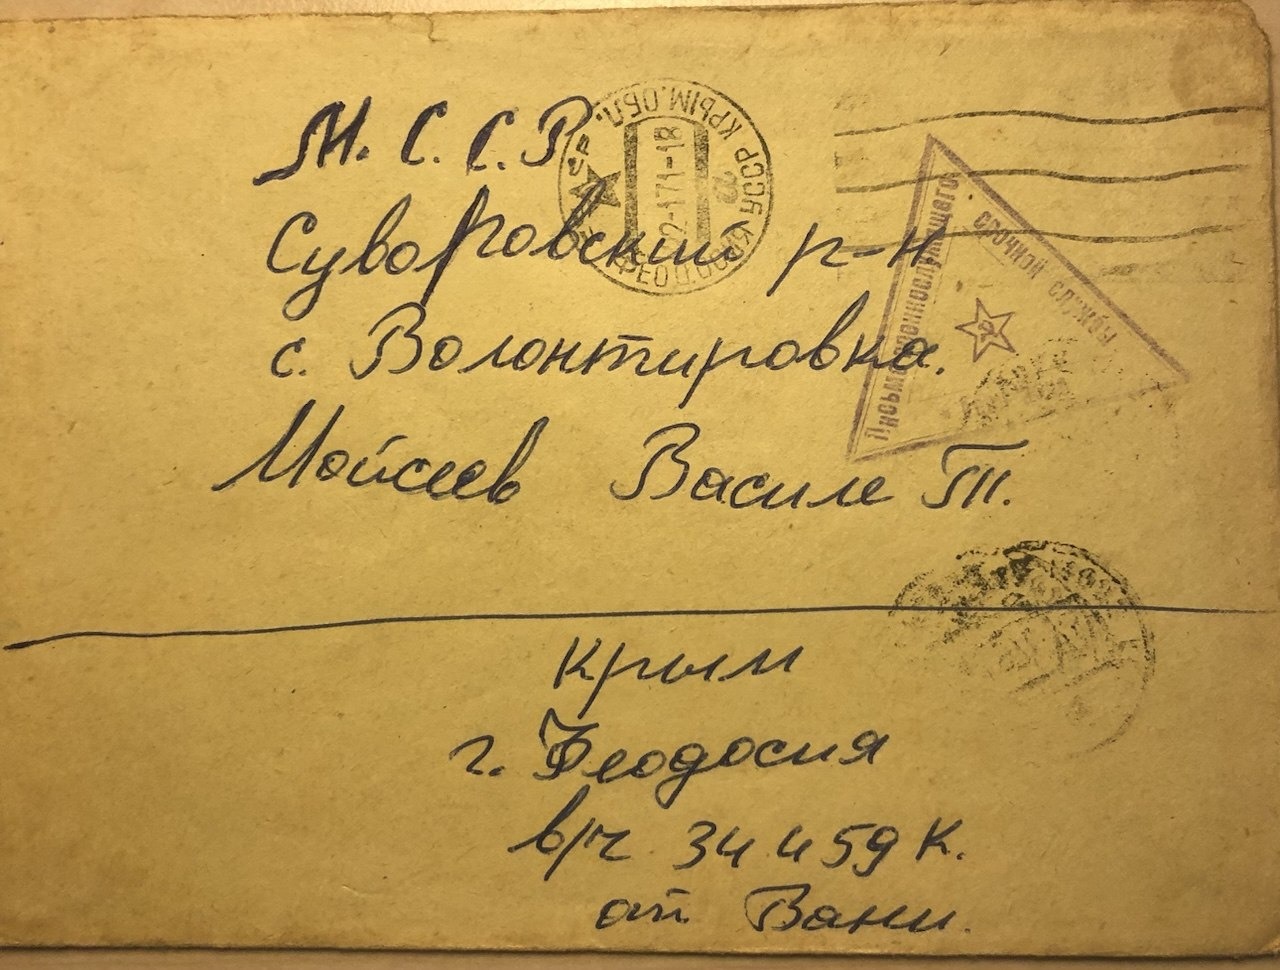 М.С.С.Р
Суворовский р-н
с. Волонтировка.
Мойсеев Василе Т.
УССР КРЫМ.ОБЛ.
2-171-18
а
ФЕОД
Письмо военнослужащего
срочной службы
Крым
г. Феодосия
в/ч 34459 К.
от Вани.